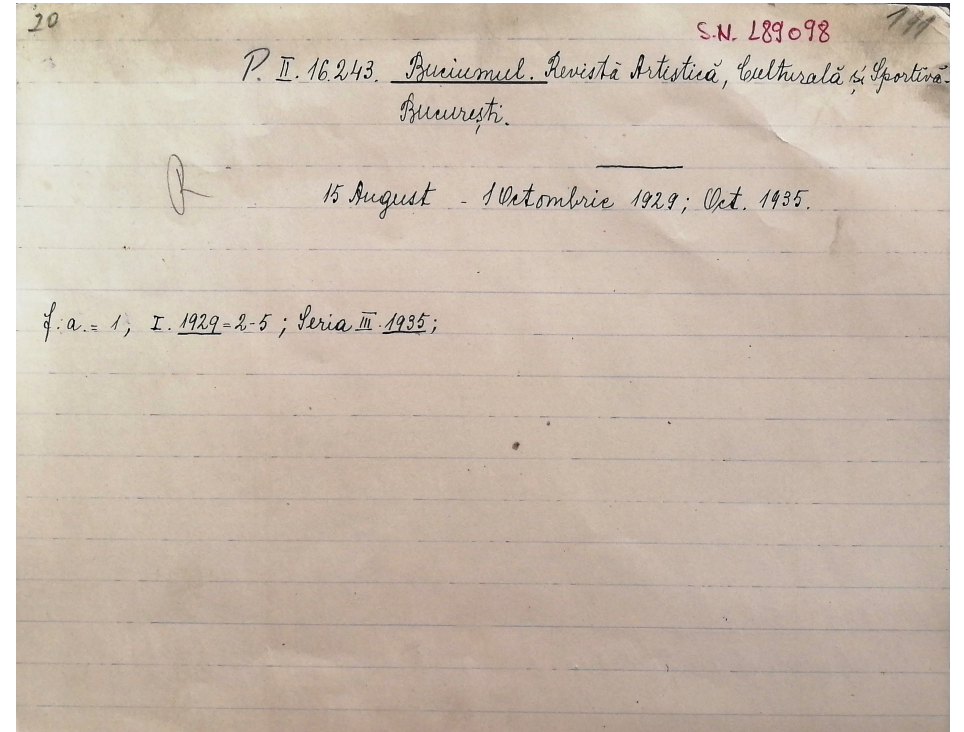 20
S.N. L89098
P. II. 16.243. Buciumul. Revistă Artistică, Culturală și Sportivă.
București.
R
15 August - 1 Octombrie 1929; Oct. 1935.
f.a. = 1; I. 1929 = 2-5; Seria III. 1935;